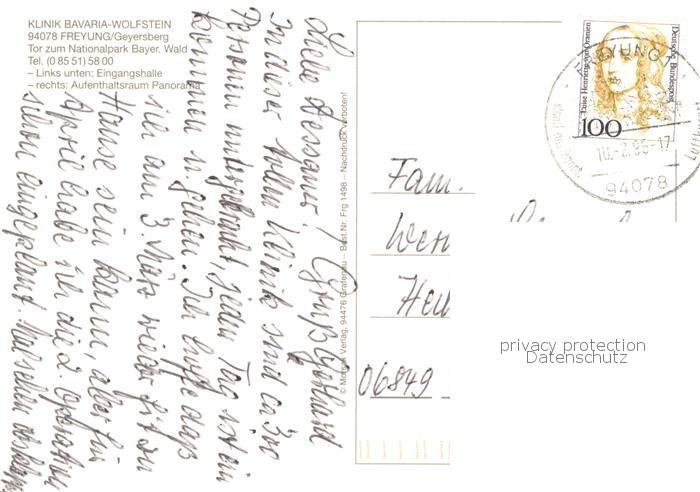 KLINIK BAVARIA-WOLFSTEIN
94078 FREYUNG/Geyersberg
Tor zum Nationalpark Bayer. Wald
Tel. (0 85 51) 58 00
– Links unten: Eingangshalle
– rechts: Aufenthaltsraum Panorama
Liebe Dessauer! Gruß Gerhard
In dieser tollen Klinik sind ca 300
Personen untergebracht, jeden Tag ist ein
kommen u. gehen. Ich hoffe daß
ich am 3. März wieder fit zu
Hause sein kann, aber für
April habe ich die 2. Operation
schon eingeplant. Mal sehen
© Verlag, 94476 Grafenau – Best.Nr. Frg 1498 – Nachdruck verboten!
Deutsche Bundespost
Luise Henriette von Oranien
100
FREYUNG 1
94078
Fam.
06849
privacy protection
Datenschutz